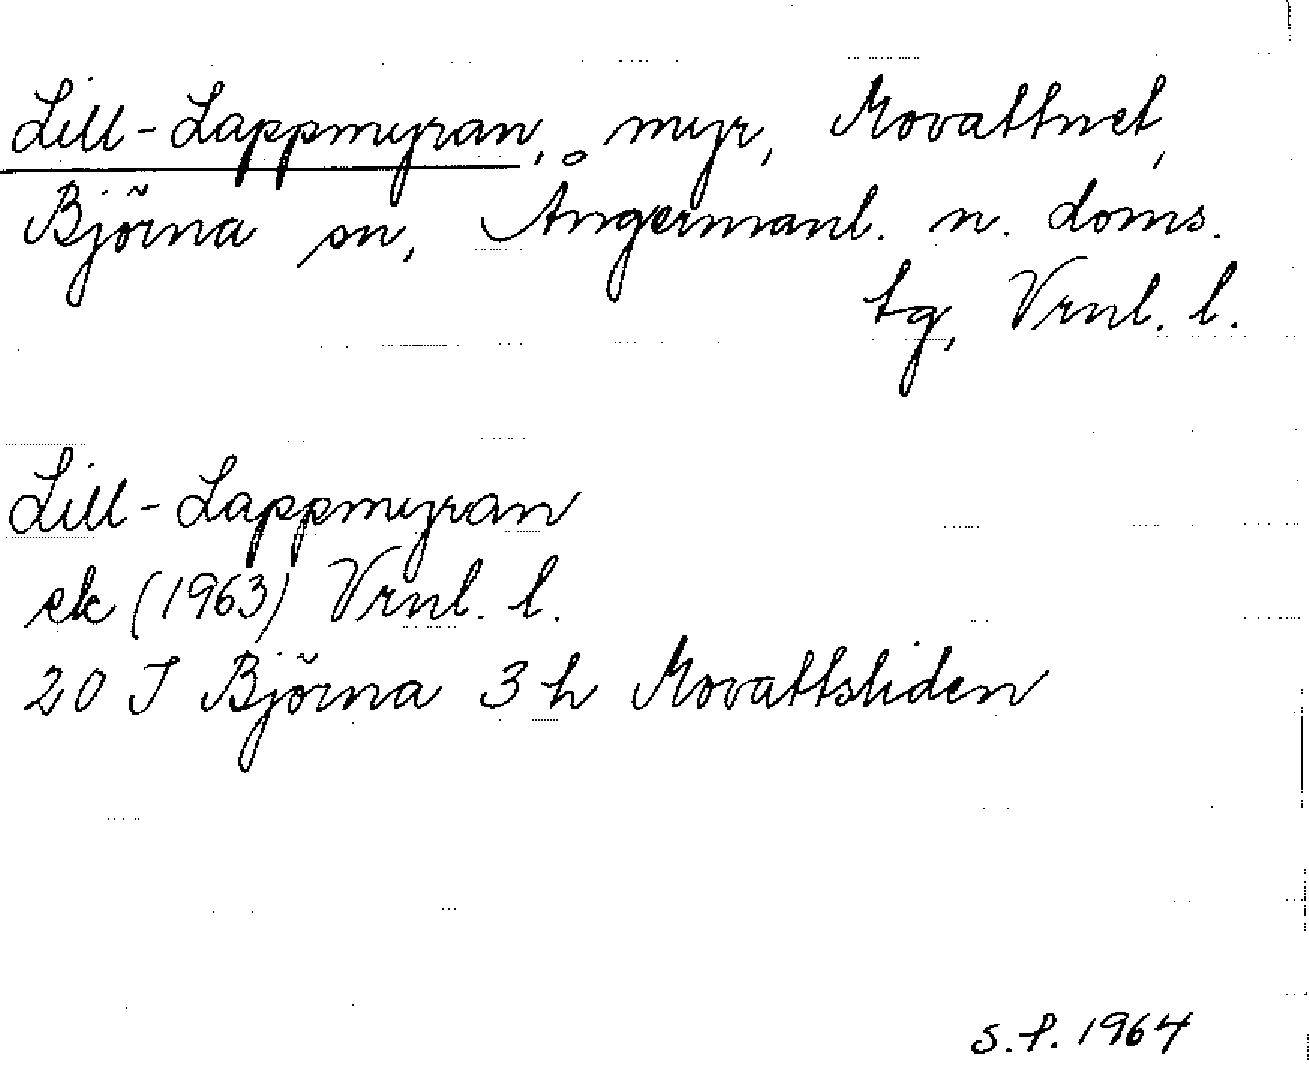 Lill-Lappmyran, myr, Movattnet,
Björna sn, Ångermanl. n. doms.
tg, Vrnl. l.
Lill-Lappmyran
ek (1963) Vrnl. l.
20 I Björna 3 h Movattsliden
S.P. 1964